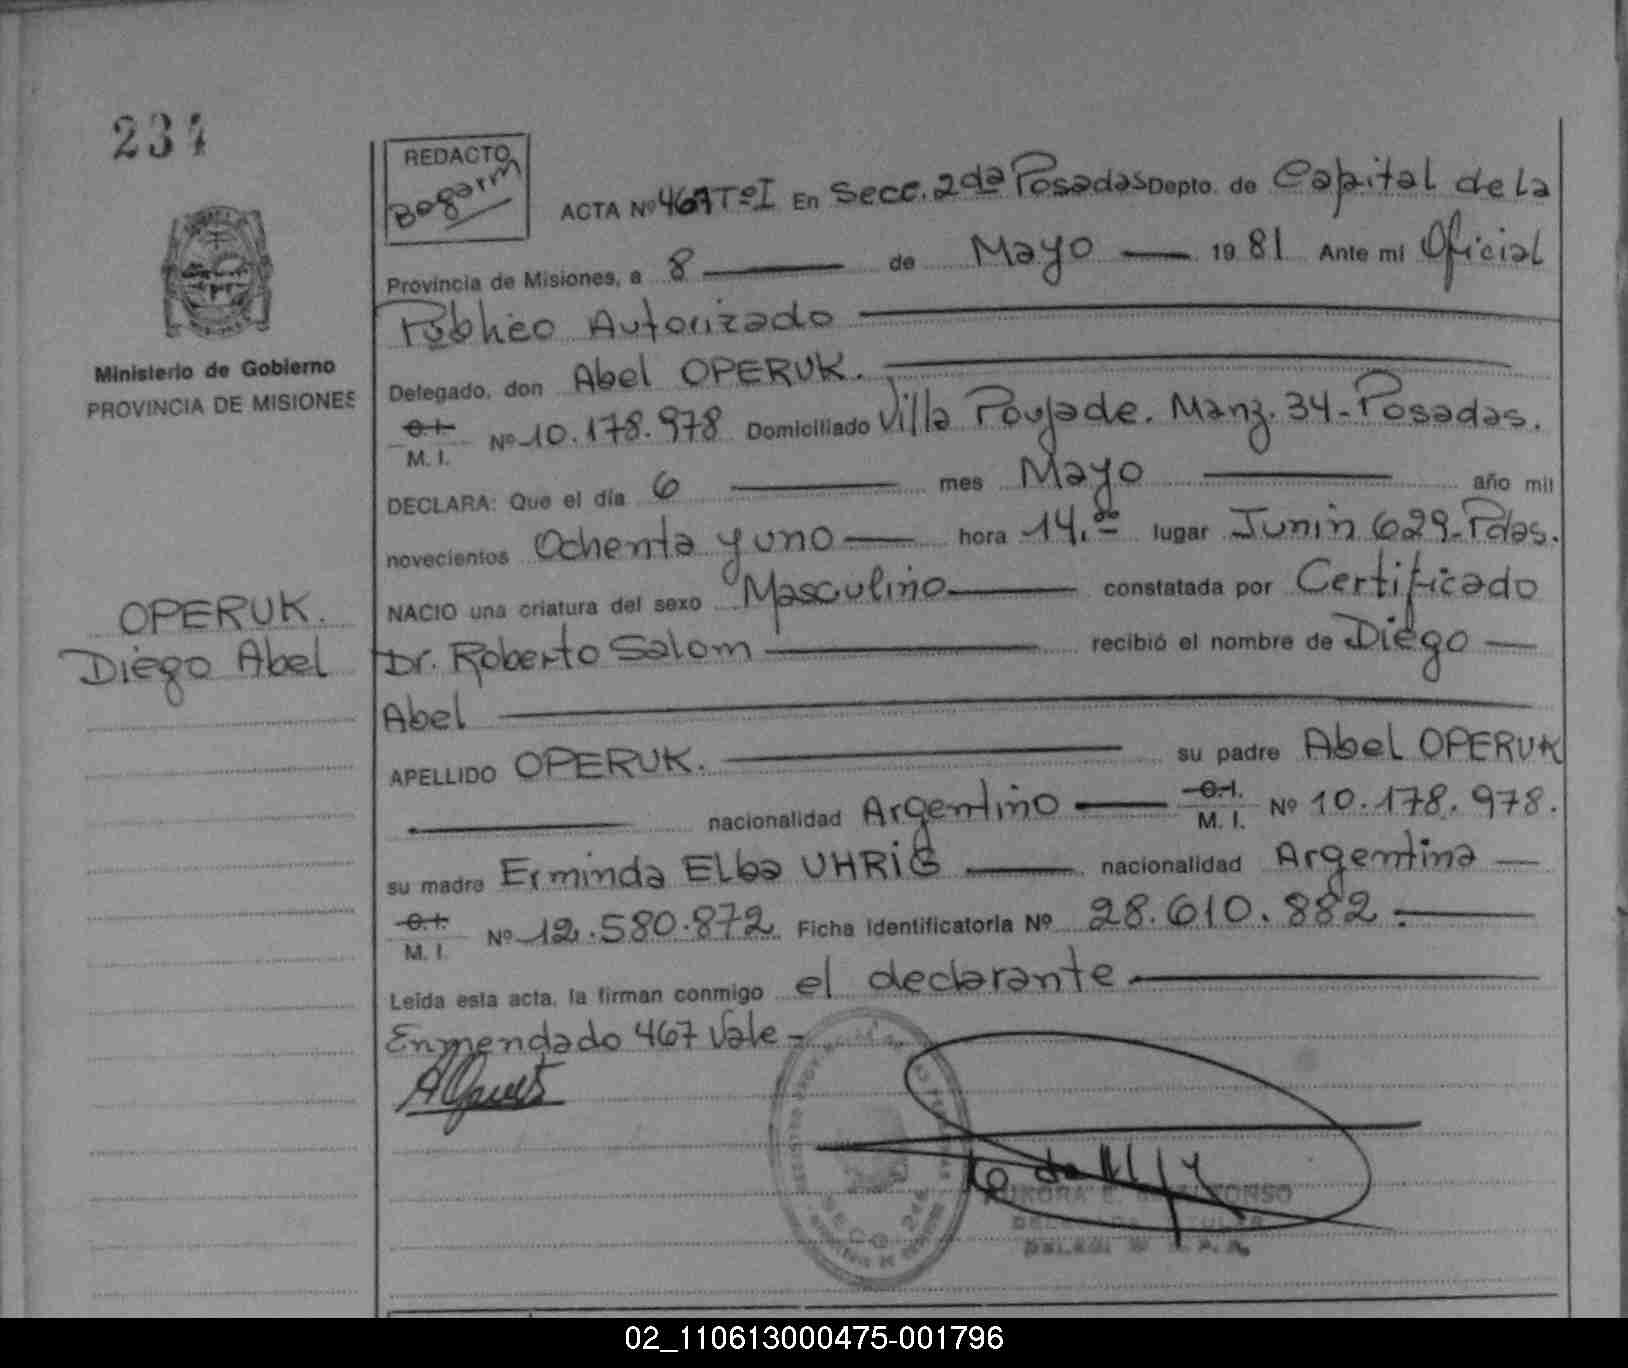 234
REDACTO
Bogarin
ACTA Nº 467 TºI En Secc. 2da Posadas Depto. de Capital de la
Provincia de Misiones, a 8 de Mayo 1981 Ante mi Oficial
Público Autorizado
Ministerio de Gobierno
PROVINCIA DE MISIONES
Delegado, don Abel OPERUK.
O.I. M. I. Nº 10.178.978 Domiciliado Villa Poujade. Manz. 34-Posadas.
DECLARA: Que el día 6 mes Mayo año mil
novecientos Ochenta y uno hora 14.00 lugar Junin 629-Pdas.
NACIO una criatura del sexo Masculino constatada por Certificado
OPERUK.
Diego Abel
Dr. Roberto Salom recibió el nombre de Diego
Abel
APELLIDO OPERUK. su padre Abel OPERUK
nacionalidad Argentino O.I. M. I. Nº 10.178.978.
su madre Erminda Elba UHRIG nacionalidad Argentina
O.I. M. I. Nº 12.580.872 Ficha Identificatoria Nº 28.610.882.-
Leída esta acta, la firman conmigo el declarante
Enmendado 467 Vale-
SECC 2da
AURORA E.
02_110613000475-001796